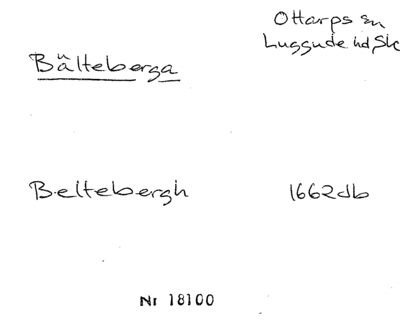 Ottarps sn
Luggude hd Sk
Bälteberga
Beltebergh 1662db
Nr 18100